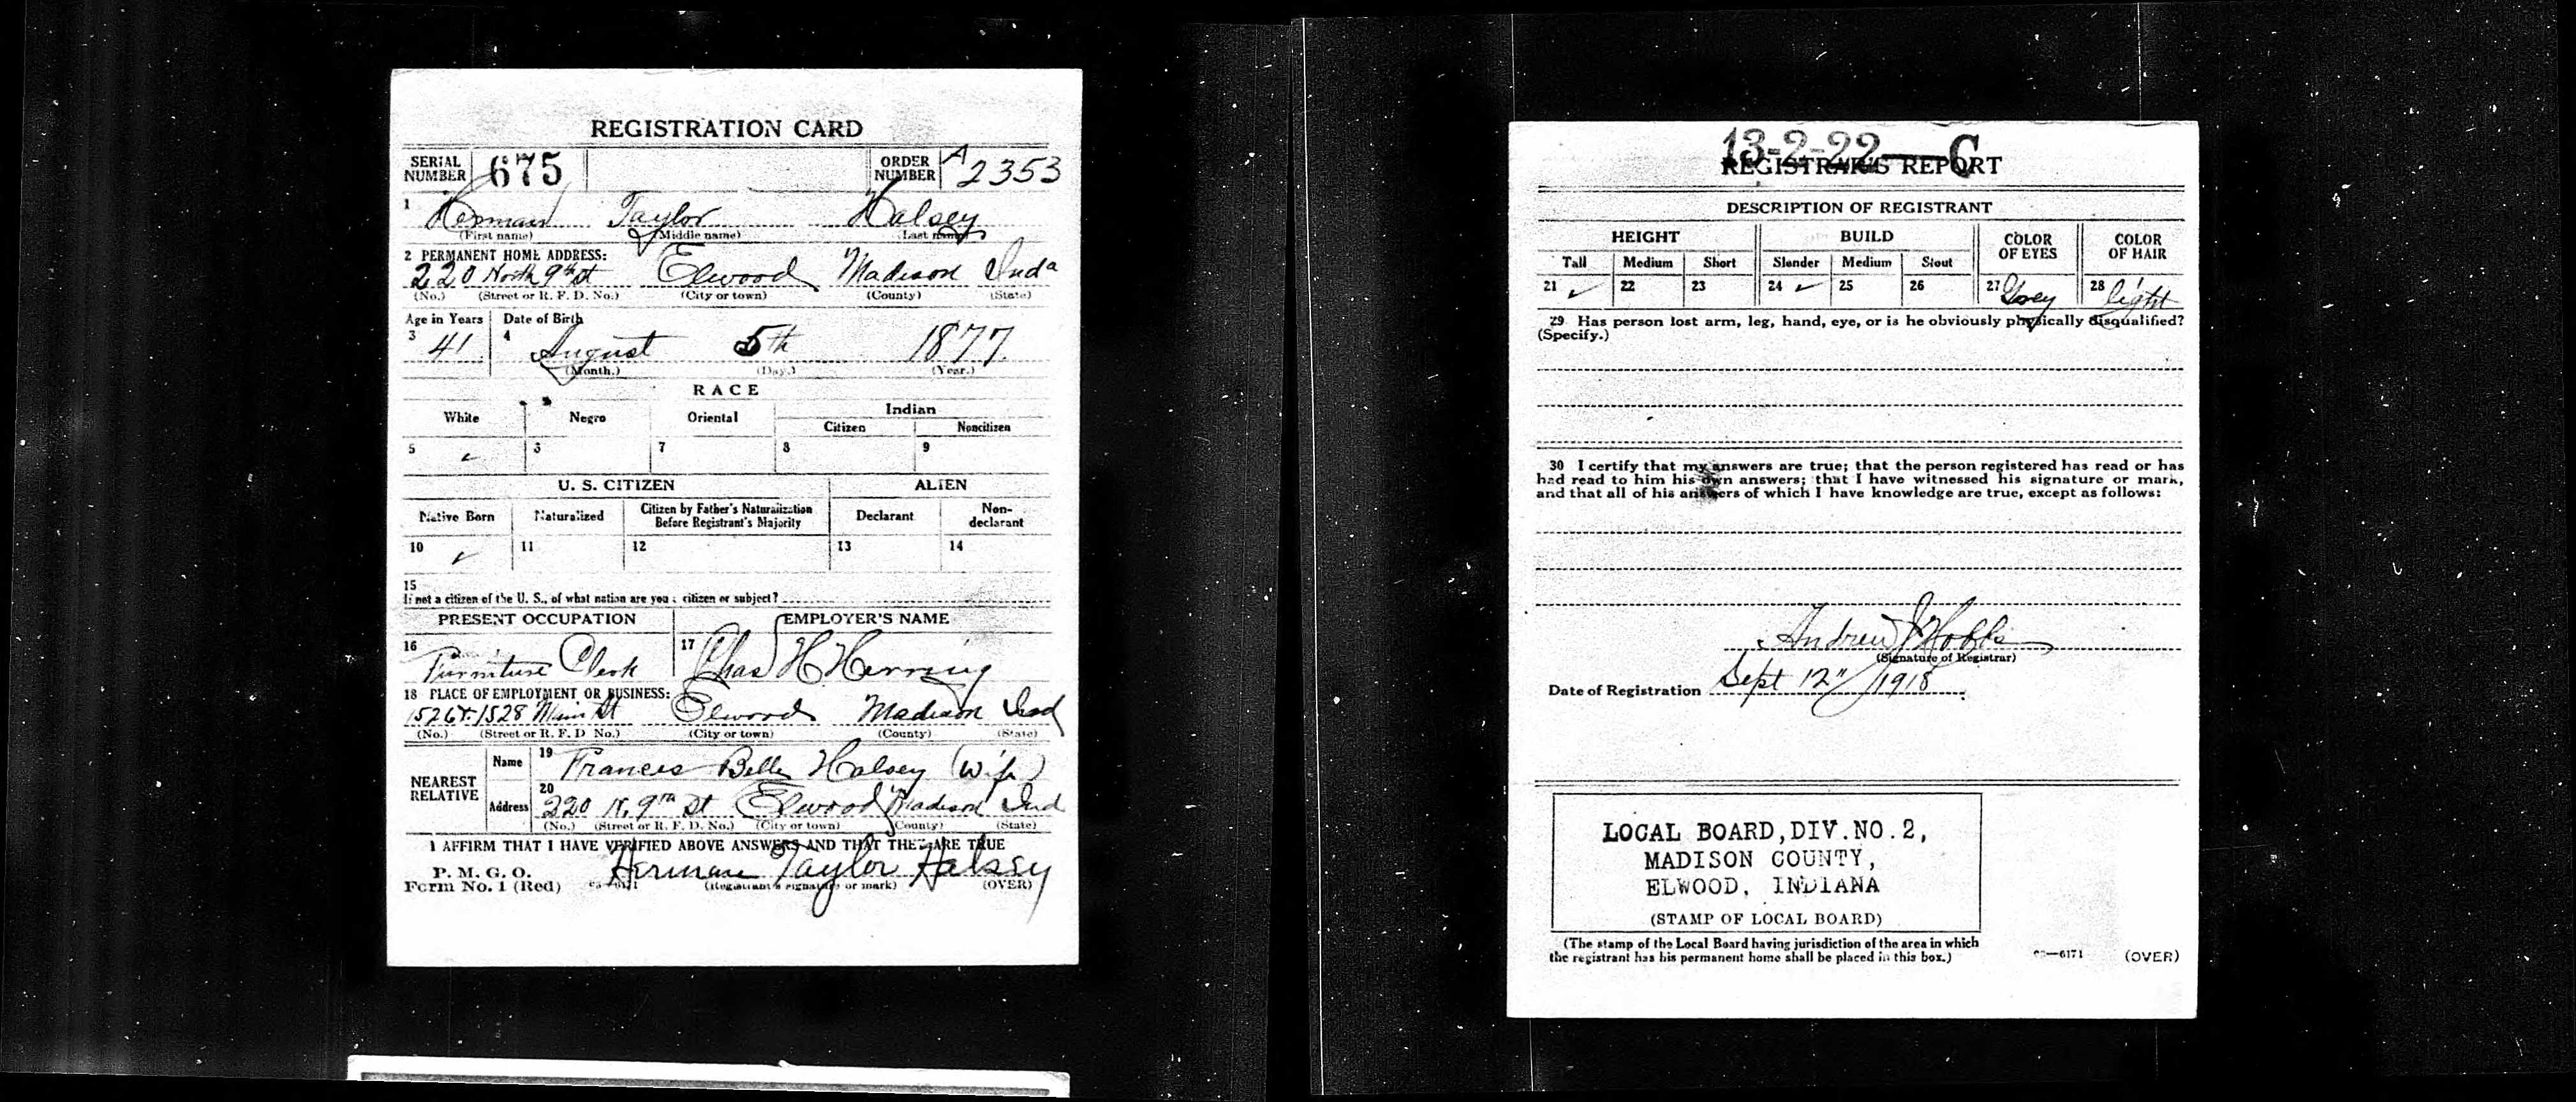 REGISTRATION CARD
SERIAL NUMBER 675 ORDER NUMBER A 2353
1 Herman Taylor Halsey
(First name) (Middle name) (Last name)
2 PERMANENT HOME ADDRESS:
220 North 9th St Elwood Madison Inda
(No.) (Street or R. F. D. No.) (City or town) (County) (State)
Age in Years Date of Birth
3 41 4 August 5th 1877.
(Month.) (Day.) (Year.)
RACE
White Negro Oriental Indian
Citizen Noncitizen
5 ✓ 6 7 8 9
U. S. CITIZEN ALIEN
Native Born Naturalized Citizen by Father's Naturalization Before Registrant's Majority Declarant Non-declarant
10 ✓ 11 12 13 14
15
If not a citizen of the U. S., of what nation are you a citizen or subject?
PRESENT OCCUPATION EMPLOYER'S NAME
16 Furniture Clerk 17 Chas H Herring
18 PLACE OF EMPLOYMENT OR BUSINESS:
1526 & 1528 Main St Elwood Madison Ind
(No.) (Street or R. F. D. No.) (City or town) (County) (State)
NEAREST RELATIVE
Name 19 Frances Belle Halsey (Wife)
Address 20 220 N. 9th St Elwood Madison Ind
(No.) (Street or R. F. D. No.) (City or town) (County) (State)
I AFFIRM THAT I HAVE VERIFIED ABOVE ANSWERS AND THAT THEY ARE TRUE
P. M. G. O.
Form No. 1 (Red) Herman Taylor Halsey
(Registrant's signature or mark) (OVER)
13-2-22 C
REGISTRAR'S REPORT
DESCRIPTION OF REGISTRANT
HEIGHT BUILD COLOR OF EYES COLOR OF HAIR
Tall Medium Short Slender Medium Stout
21 ✓ 22 23 24 ✓ 25 26 27 Grey 28 light
29 Has person lost arm, leg, hand, eye, or is he obviously physically disqualified?
(Specify.)
30 I certify that my answers are true; that the person registered has read or has
had read to him his own answers; that I have witnessed his signature or mark,
and that all of his answers of which I have knowledge are true, except as follows:
Andrew J Hobbs
(Signature of Registrar)
Date of Registration Sept 12" 1918
LOCAL BOARD, DIV. NO. 2,
MADISON COUNTY,
ELWOOD, INDIANA
(STAMP OF LOCAL BOARD)
(The stamp of the Local Board having jurisdiction of the area in which
the registrant has his permanent home shall be placed in this box.)
—6171 (OVER)